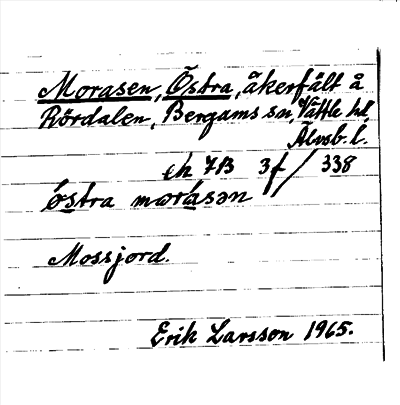 Morasen, Östra, åkerfält å
Rördalen, Bergums sn, Vättle hd,
Älvsb. l.
ek 7B 3f / 338
östra morasən
Mossjord.
Erik Larsson 1965.